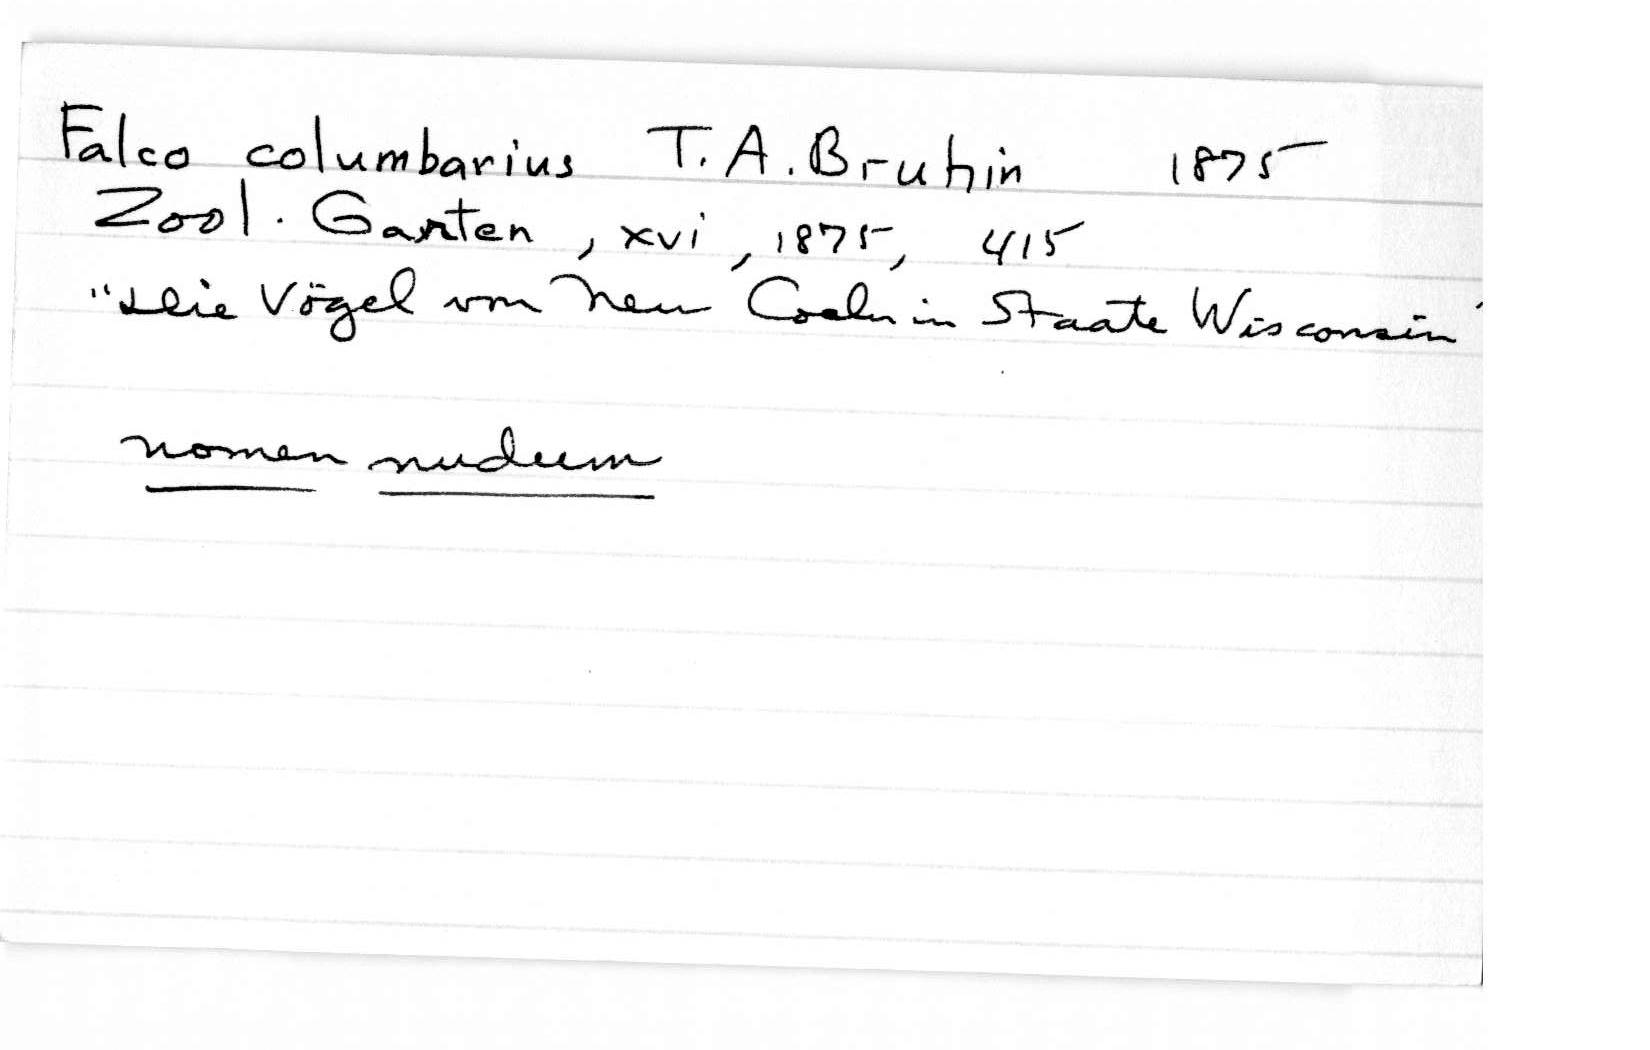 Falco columbarius T. A. Bruhin 1875
Zool. Garten, xvi, 1875, 415
"Die Vögel von Neu Coeln in Staate Wisconsin"
nomen nudum